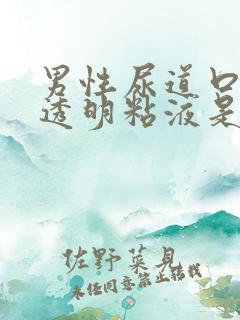 男性尿道口
透明粘液是
佐野菜见
未经同意禁止转载